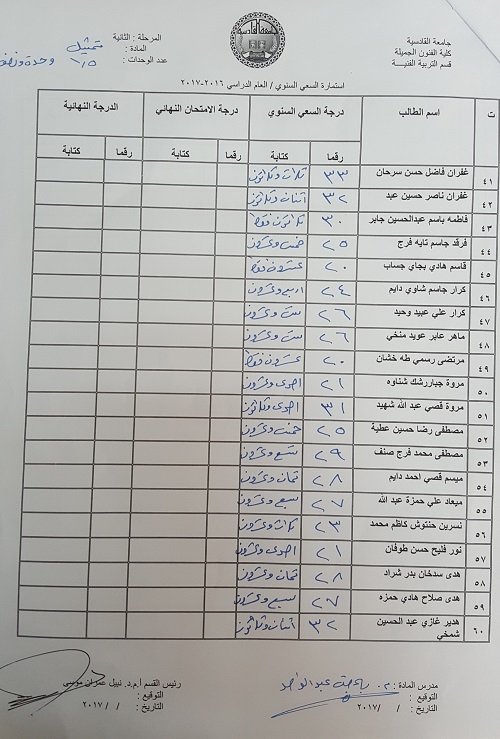 جامعة القادسية
كلية الفنون الجميلة
قسم التربية الفنية
المرحلة : الثانية
المادة : تمثيل
عدد الوحدات : ١٫٥ وحدة ونصف
استمارة السعي السنوي / العام الدراسي ٢٠١٦-٢٠١٧
ت اسم الطالب درجة السعي السنوي درجة الامتحان النهائي الدرجة النهائية
رقما كتابة رقما كتابة رقما كتابة
٤١ غفران فاضل حسن سرحان ٣٣ ثلاث وثلاثون
٤٢ غفران ناصر حسين عبد ٣٢ اثنان وثلاثون
٤٣ فاطمه باسم عبدالحسين جابر ٣٠ ثلاثون فقط
٤٤ فرقد جاسم تايه فرج ٢٥ خمس وعشرون
٤٥ قاسم هادي بجاي جساب ٢٠ عشرون فقط
٤٦ كرار جاسم شاوي دايم ٢٤ اربع وعشرون
٤٧ كرار علي عبيد وحيد ٢٦ ست وعشرون
٤٨ ماهر عابر عويد منخي ٢٦ ست وعشرون
٤٩ مرتضى رسمي طه خشان ٢٠ عشرون فقط
٥٠ مروة جباررشك شناوه ٢١ احدى وعشرون
٥١ مروة قصي عبد الله شهيد ٣١ احدى وثلاثون
٥٢ مصطفى رضا حسين عطية ٢٥ خمس وعشرون
٥٣ مصطفى محمد فرج صنف ٢٩ تسع وعشرون
٥٤ ميسم قصي احمد دايم ٢٨ ثمان وعشرون
٥٥ ميعاد علي حمزة عبد الله ٢٧ سبع وعشرون
٥٦ نسرين حنتوش كاظم محمد ٢٣ ثلاث وعشرون
٥٧ نور فليح حسن طوفان ٢١ احدى وعشرون
٥٨ هدى سدخان بدر شراد ٢٨ ثمان وعشرون
٥٩ هدى صلاح هادي حمزه ٢٧ سبع وعشرون
٦٠ هدير غازي عبد الحسين شمخي ٣٢ اثنان وثلاثون
مدرس المادة : م. عبدالواحد
التوقيع :
التاريخ : / /٢٠١٧
رئيس القسم أ.م.د. نبيل عمران موسى
التوقيع :
التاريخ : / / ٢٠١٧